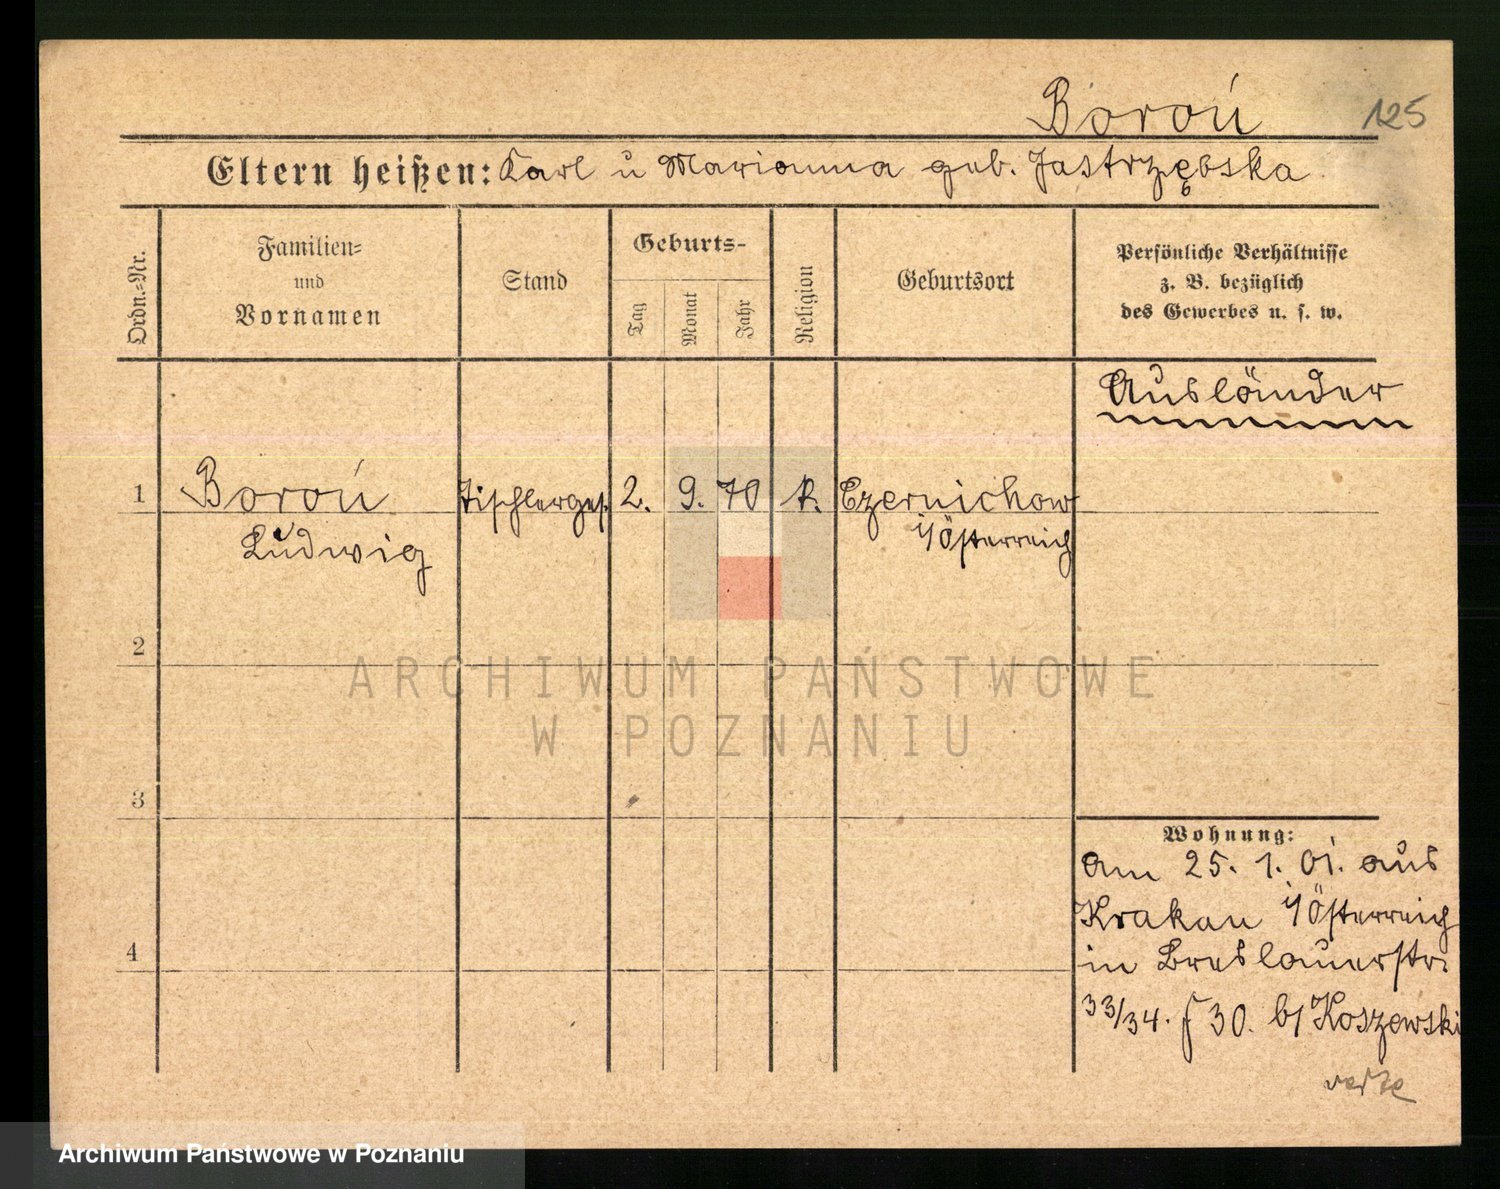 Boroń 125
Eltern heißen: Karl u Marianna geb. Jastrzębska
Ordn.-Nr.
Familien-
und
Vornamen
Stand
Geburts-
Tag
Monat
Jahr
Religion
Geburtsort
Persönliche Verhältnisse
z. B. bezüglich
des Gewerbes u. s. w.
Ausländer
1 Boroń Tischlerges. 2. 9. 70 k. Czernichow
Ludwig i/Österreich
2
ARCHIWUM PAŃSTWOWE
W POZNANIU
3
Wohnung:
am 25. 1. 01. aus
Krakau i/Österreich
4 in Breslauerstr.
33/34. 30. b/Koszewski
Archiwum Państwowe w Poznaniu